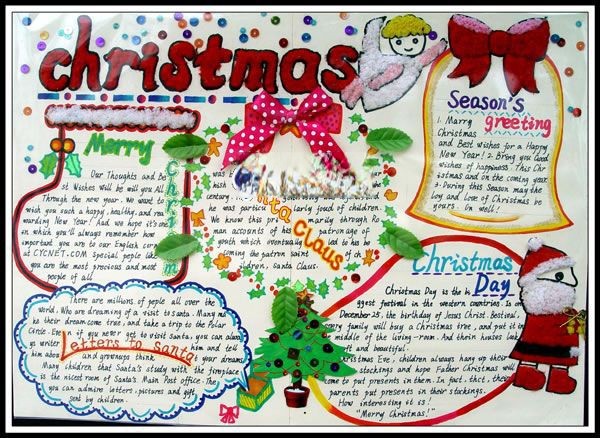 christmas
Merry
Christm
Our Thoughts and Be
st Wishes will be will you All
Through the new year. We want to
wish you such a happy, healthy, and rea
warding New Year! And we hope it's one
in which you'll always remember how
important you are to our English corner
at CYCNET.COM Special people like
you are the most precious and most
people of all
Santa
Claus
was b
century.
he was particu larly joud of children.
We know this pri marily through Ro
man accounts of his patronage of
youth which eventually led to his be
coming the patron saint of ch
ildren, santa Claus.
Season's
greeting
1. Marry
Christmas
and Best wishes for a Happy
New Year! 2. Bring you Good
wishes of happiness This Chr
istmas and on the coming year
3. During this Season may the
joy and Love of Christmas be
yours. On well!
Letters to Santa
There are millions of peple all over the
world. Who are dreaming of a visit to santa. Many ma
ke their dream come true, and take a trip to the Polar
Circle. Even if you never get to visit Santa, you can alway
s write him and tell
him abou your dreams
and grownups think
Many children that Santa's study with the fireplace
is the nicest room of Santa's Main Post Office. The
you can admire letters, pictures and gift
sent by children.
Christmas
Day
Christmas Day is the bi
ggest festival in the western countries. Is on
December 25, the birthday of Jesus Christ. Bestival,
every family will buy a Christmas tree, and put it in
middle of the living-room. And their houses look
and beautiful.
Christmas Eve, children always hang up their
stockings and hope Father Christmas will
come to put presents in them. In fact, their
parents put presents in their stockings.
How interesting it is!
"Merry Christmas!"